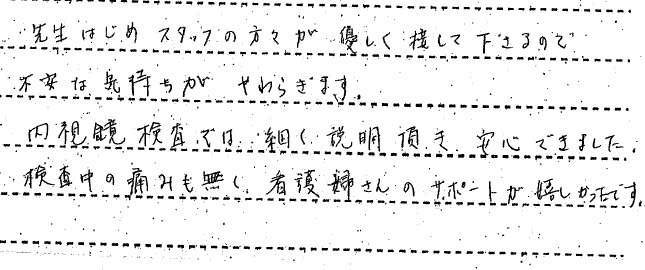 先生はじめスタッフの方々が 優しく接して下さるので
不安な気持ちが やわらぎます。
内視鏡検査では 細く説明頂き、安心できました。
検査中の痛みも無く、看護婦さんのサポートが嬉しかったです。